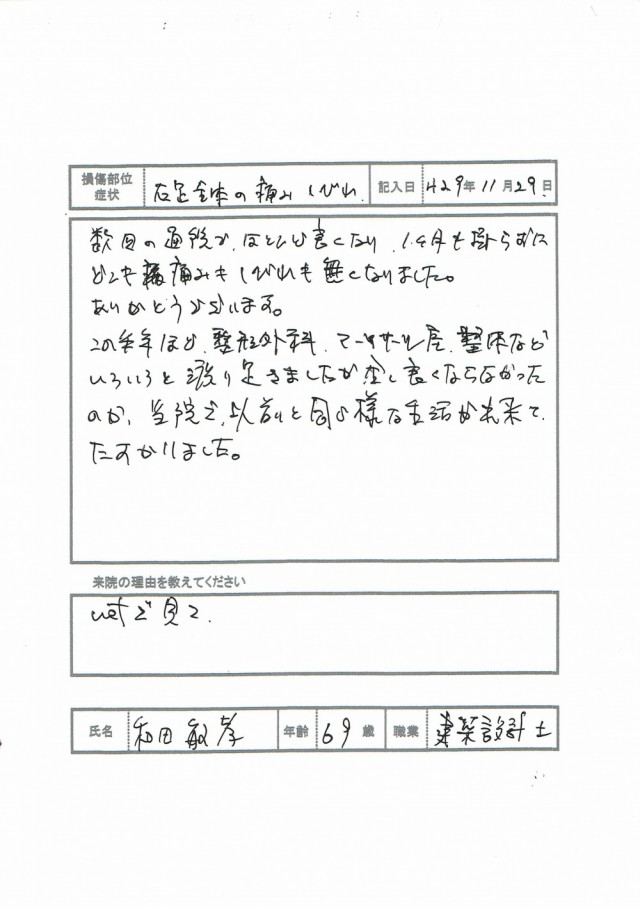 損傷部位
症状
右足全体の痛み しびれ
記入日
H29年11月29日
数回の通院で、ほとんど良くなり、1ヶ月も掛らずに
どこも痛みもしびれも無くなりました。
ありがとうございます。
この半年ほど、整形外科、マッサージ屋、整体など
いろいろと渡り歩きましたが全し良くならなかった
のが、当院で、以前と同じ様な生活が出来て、
たすかりました。
来院の理由を教えてください
netで見て、
氏名 和田敏孝 年齢 69歳 職業 建築設計士